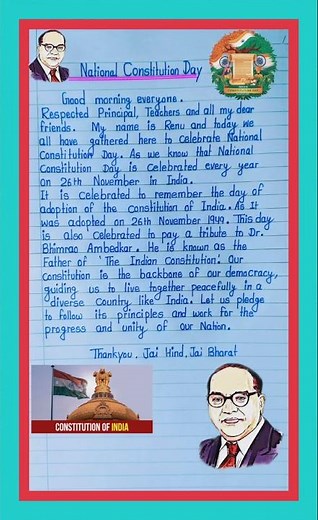 National Constitution Day
Good morning everyone.
Respected Principal, Teachers and all my dear
friends. My name is Renu and today we
all have gathered here to celebrate National
Constitution Day. As we know that National
Constitution Day is celebrated every year
on 26th November in India.
It is celebrated to remember the day of
adoption of the constitution of India. As It
was adopted on 26th November 1949. This day
is also celebrated to pay a tribute to Dr.
Bhimrao Ambedkar. He is known as the
Father of 'The Indian Constitution'. Our
constitution is the backbone of our democracy,
guiding us to live together peacefully in a
diverse country like India. Let us pledge
to follow its principles and work for the
progress and unity of our Nation.
Thankyou. Jai Hind, Jai Bharat
CONSTITUTION OF INDIA